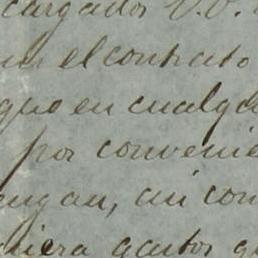 cargador V. V.
el contrato
que en cualq
por convenie
engan, asi com
niera gastos q